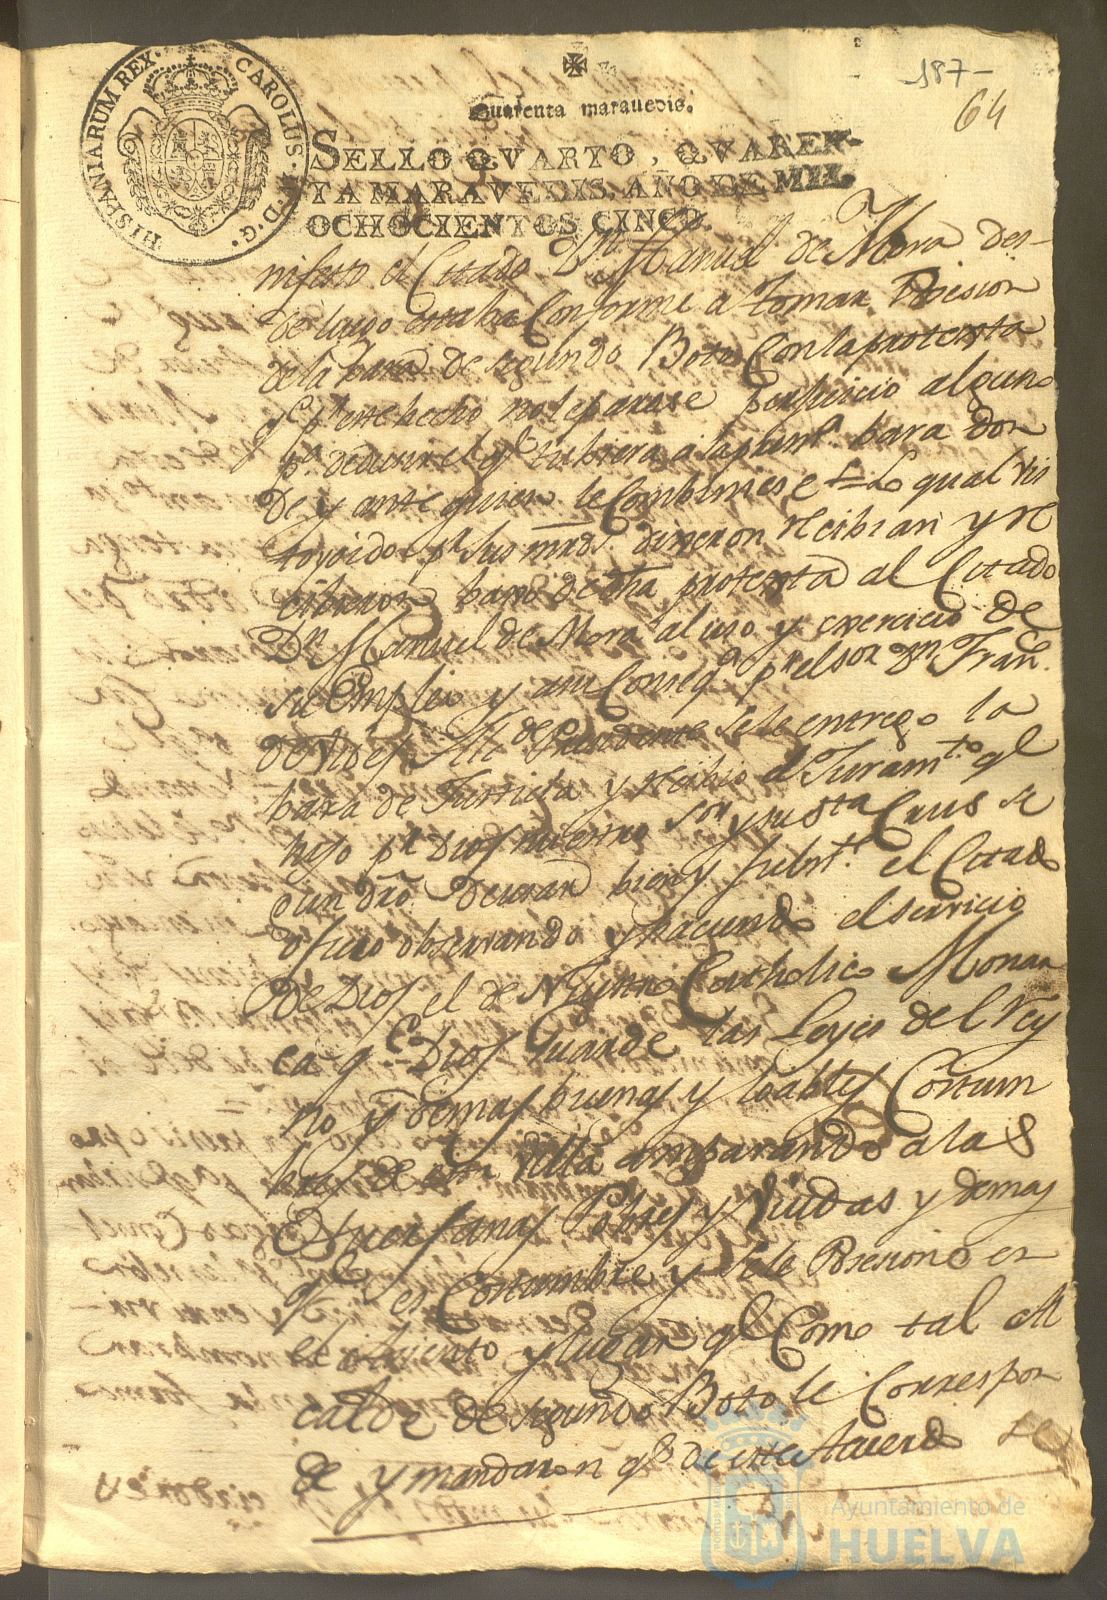 187-
64
HISPANIARUM REX. CAROLUS. IV. D. G.
Quarenta maravedis.
SELLO QVARTO, QVAREN-
TA MARAVEDIS, AÑO DE MIL
OCHOCIENTOS CINCO.
nifesto el Citado Dn Manuel de Mora des-
de luego estaba Conforme a tomar Posesion
de la bara de segundo Boto Con la protexta
qe pr este hecho no le parase perjuicio alguno
pa deducir el qe tubiera a la bara don
de y ante quien le Combiniese = Lo qual vis
to y oido pr sus mrds dixeron recibian y re
cibieron bajo de dha protexta al Citado
Dn Manuel de Mora al uso y exercicio de
su Empleo y en Conseqa pr el Sor Dn Franco
de Presidente se le entrego la
bara de Justicia y recibio el Juramto qe
hizo pr Dios nuestro Sor y su Sta Crus se
gun dro de usar bien y el Citado
oficio observando y haciendo el servicio
de Dios el de Nuestro Catholico Monar
ca qe Dios Guarde las Leyes del Rey
no y demas buenas y loables Costum
bres de esta Villa amparando a las
Huerfanas Pobres y Viudas y demas
qe es Costumbre y se le Posesiono en
el asiento y lugar qe Como tal Al
calde de segundo Boto le Correspon
de y mandaron qe de este Acuerdo se
Ayuntamiento de
HUELVA